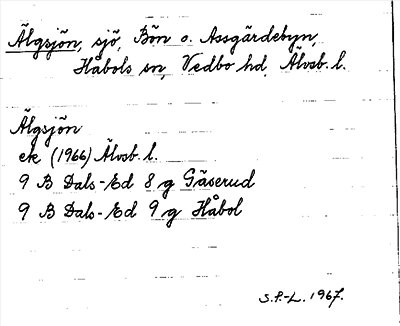 Älgsjön, sjö, Bön o. Assgärdebyn,
Håbols sn, Vedbo hd, Älvsb. l.
Älgsjön
ek (1966) Älvsb. l.
9 B Dals-Ed 8 g Gäserud
9 B Dals-Ed 9 g Håbol
S.F.-L. 1967.